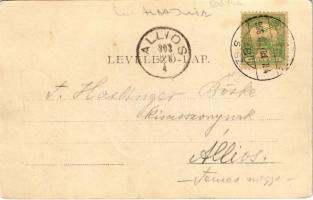 ALLIOS
903
4
LEVELEZŐ-LAP.
T. Haslinger Böske
kisasszonynak
Allios.
Temes megye